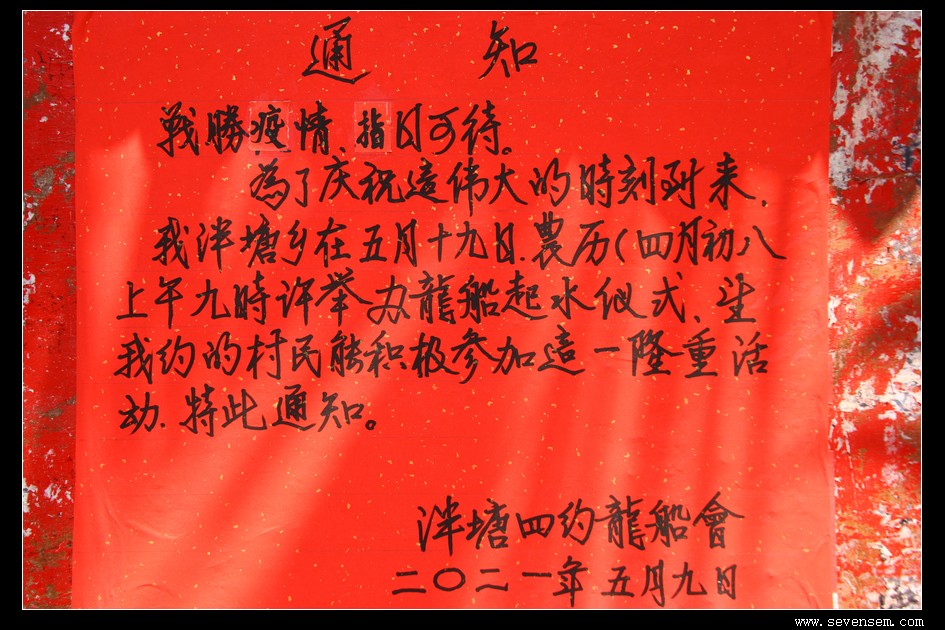 通 知
戰勝疫情、指日可待。
為了庆祝這伟大的時刻到来,
我泮塘乡在五月十九日.農历(四月初八
上午九時许举办龍船起水仪式、望
我约的村民能积极參加這一隆重活
动.特此通知。
泮塘四约龍船會
二〇二一年五月九日
www.sevensem.com